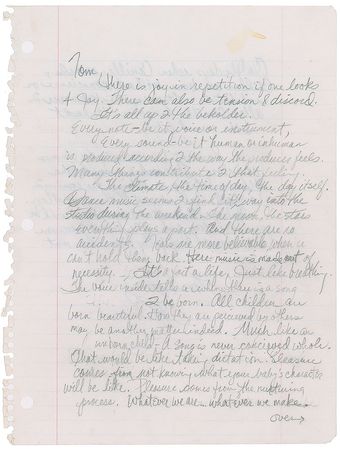 Tom,
There is joy in repetition if one looks
4 Joy. There can also be tension & discord.
It's all up 2 the beholder.
Every note - be it voice or instrument,
Every sound - be it human or inhuman
is produced according 2 the way the producer feels.
Many things contribute 2 that feeling.
The climate, the time of day, the day itself.
Dance music seems 2 find its way into the
studio during the weekend. The moon, the stars
everything plays a part. And there are no
accidents. are more believable when u
can't hold them back. Here music is made out of
necessity. It's just a life, Just like breathing.
The voice inside tells u when there is a song
2 be born. All children are
born beautiful. How they are perceived by others
may be another matter indeed. Much like an
unborn child - A song is never conceived whole.
That would be like taking dictation. Pleasure
comes from not knowing what your baby's character
will be like. Pleasure comes from the nurturing
process. Whatever we are - whatever we make -
over→